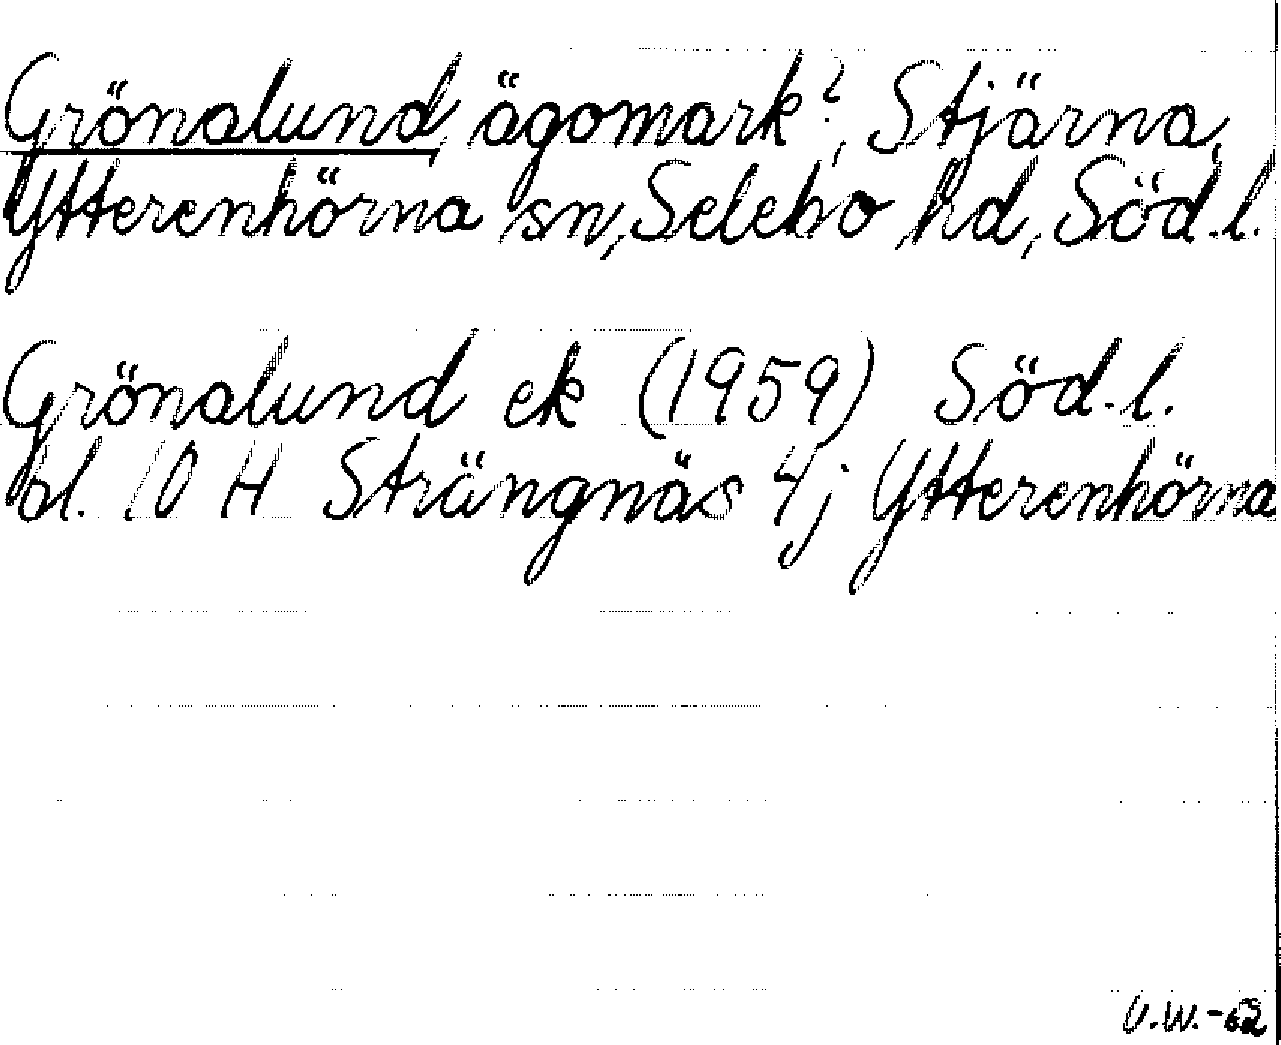 Grönalund, ägomark?, Stjärna,
Ytterenhörna sn, Selebo hd, Söd.l.
Grönalund ek (1959) Söd.l.
bl. 10 H Strängnäs 4j Ytterenhörna
U.W.-62